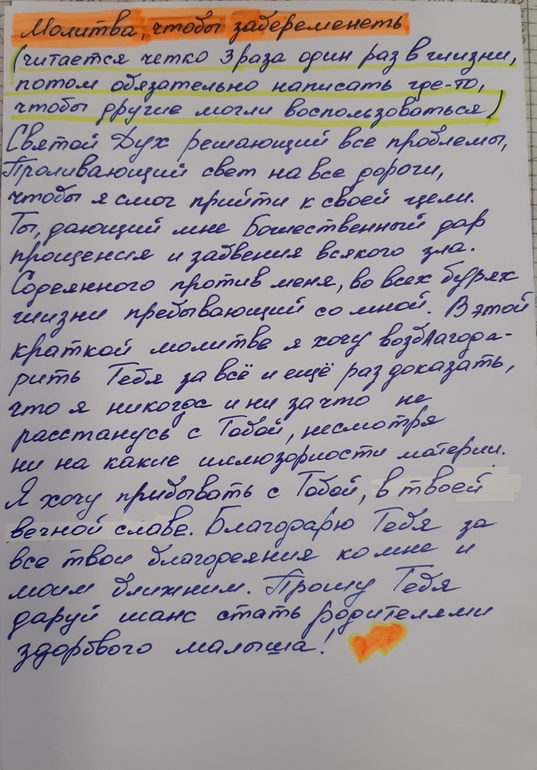 Молитва, чтобы забеременеть
(читается четко 3 раза один раз в жизни,
потом обязательно написать где-то,
чтобы другие могли воспользоваться)
Святой Дух решающий все проблемы,
Проливающий свет на все дороги,
чтобы я смог прийти к своей цели.
Ты, дающий мне Божественный дар
прощения и забвения всякого зла.
Содеянного против меня, во всех бурях
жизни пребывающий со мной. В этой
краткой молитве я хочу возблагода-
рить Тебя за всё и ещё раз доказать,
что я никогда и ни за что не
расстанусь с Тобой, несмотря
ни на какие иллюзорности материи.
Я хочу прибывать с Тобой, в твоей
вечной славе. Благодарю Тебя за
все твои благодеяния ко мне и
моим ближним. Прошу Тебя
даруй шанс стать родителями
здорового малыша!